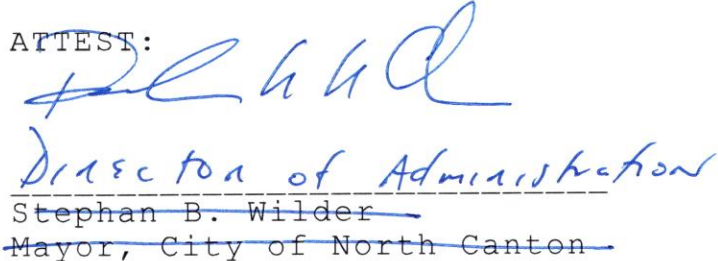 ATTEST:
Director of Administration
Stephan B. Wilder
Mayor, City of North Canton